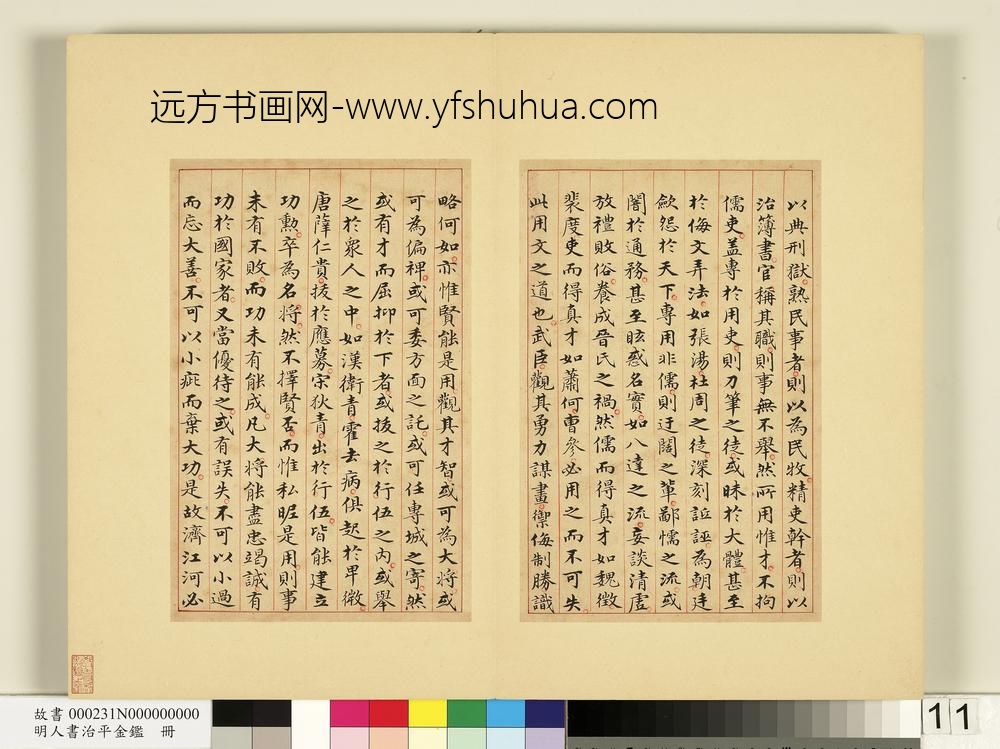 远方书画网-www.yfshuhua.com
以典刑獄熟民事者則以為民牧精吏幹者則以
治簿書官稱其職則事無不舉然所用惟才不拘
儒吏蓋專於用吏則刀筆之徒或昧於大體甚至
於侮文弄法如張湯杜周之徒深刻詆誣為朝廷
歛怨於天下專用非儒則迂闊之輩鄙懦之流或
闇於通務甚至眩惑名實如八達之流妄談清虛
放禮敗俗養成晉氏之禍然儒而得真才如魏徵
裴度吏而得真才如蕭何曹參必用之而不可失
此用文之道也武臣觀其勇力謀畫禦侮制勝識
略何如亦惟賢能是用觀其才智或可為大將或
可為偏裨或可委方面之託或可任專城之寄然
或有才而屈抑於下者或拔之於行伍之內或舉
之於眾人之中如漢衛青霍去病俱起於卑微
唐薛仁貴拔於應募宋狄青出於行伍皆能建立
功勳卒為名將然不擇賢否而惟私昵是用則事
未有不敗而功未有能成凡大將能盡忠竭誠有
功於國家者又當優待之或有誤失不可以小過
而忘大善不可以小疵而棄大功是故濟江河必
故書 000231N000000000
明人書治平金鑑 冊
11